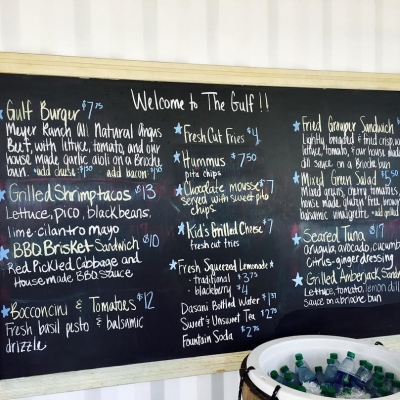 Welcome to The Gulf!!
Gulf Burger $7.75
Meyer Ranch All Natural Angus
Beef, with lettuce, tomato, and our
house made garlic aioli on a Brioche
bun
add bacon
Grilled Shrimp tacos $13
Lettuce, pico, black beans,
lime-cilantro mayo
BBQ Brisket Sandwich $10
Red Pickled Cabbage and
House made BBQ sauce
Bocconcini & Tomatoes $12
Fresh basil pesto & balsamic
drizzle
Fresh Cut Fries $4
Hummus $7.50
pita chips
Chocolate mousse $7
served with sweet pita
chips
Kid's Grilled Cheese $7
fresh cut fries
Fresh Squeezed Lemonade
- traditional $3.75
- blackberry $4
Dasani Bottled Water
Sweet & Unsweet Tea $2.75
Fountain Soda $2.75
Fried Grouper Sandwich
Lightly breaded & fried crisp, w
lettuce, tomato, & our house mad
dill sauce on a Brioche bun
Mixed Green Salad $5.50
Mixed greens, cherry tomatoes,
house made gluten free brown
balsamic vinaigrette
Seared Tuna $17
arugula, avocado, cucumb
Citrus-ginger dressing
Grilled Amberjack Sandw
Lettuce, tomato, lemon dill
sauce on a brioche bun